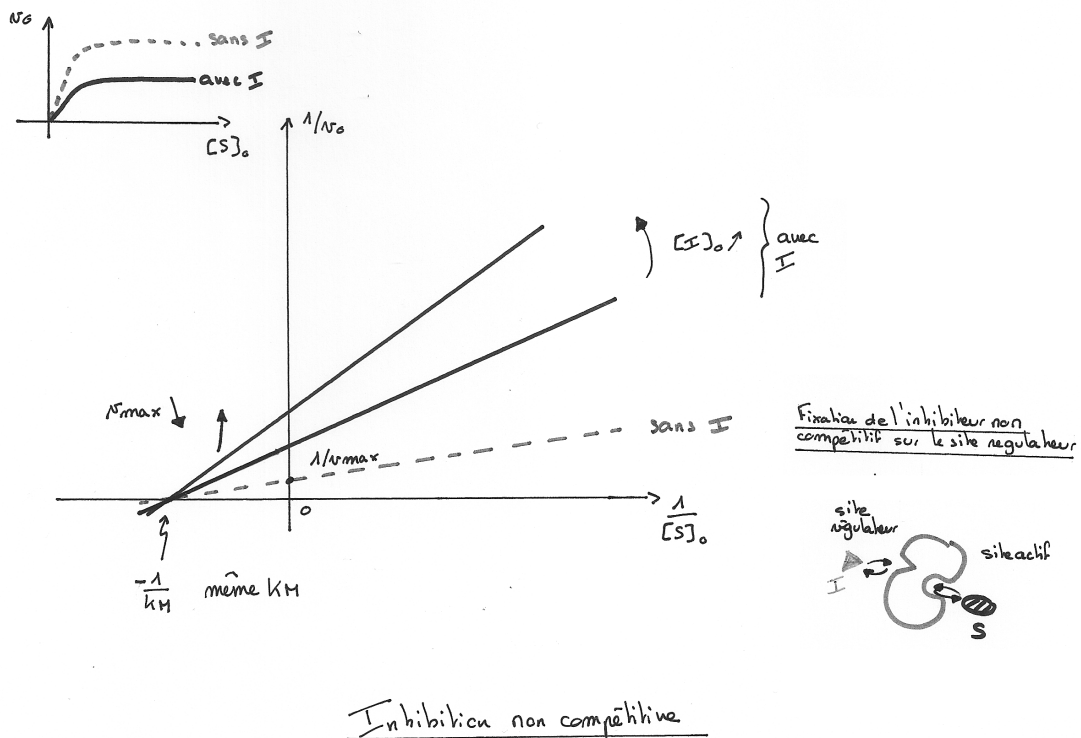 v₀
sans I
avec I
[S]₀
1/v₀
[I]₀ ↗
avec
I
vmax ↘
sans I
1/vmax
0
1
[S]₀
-1
KM
même KM
Fixation de l'inhibiteur non
compétitif sur le site regulateur
site
régulateur
site actif
I
S
Inhibition non compétitive